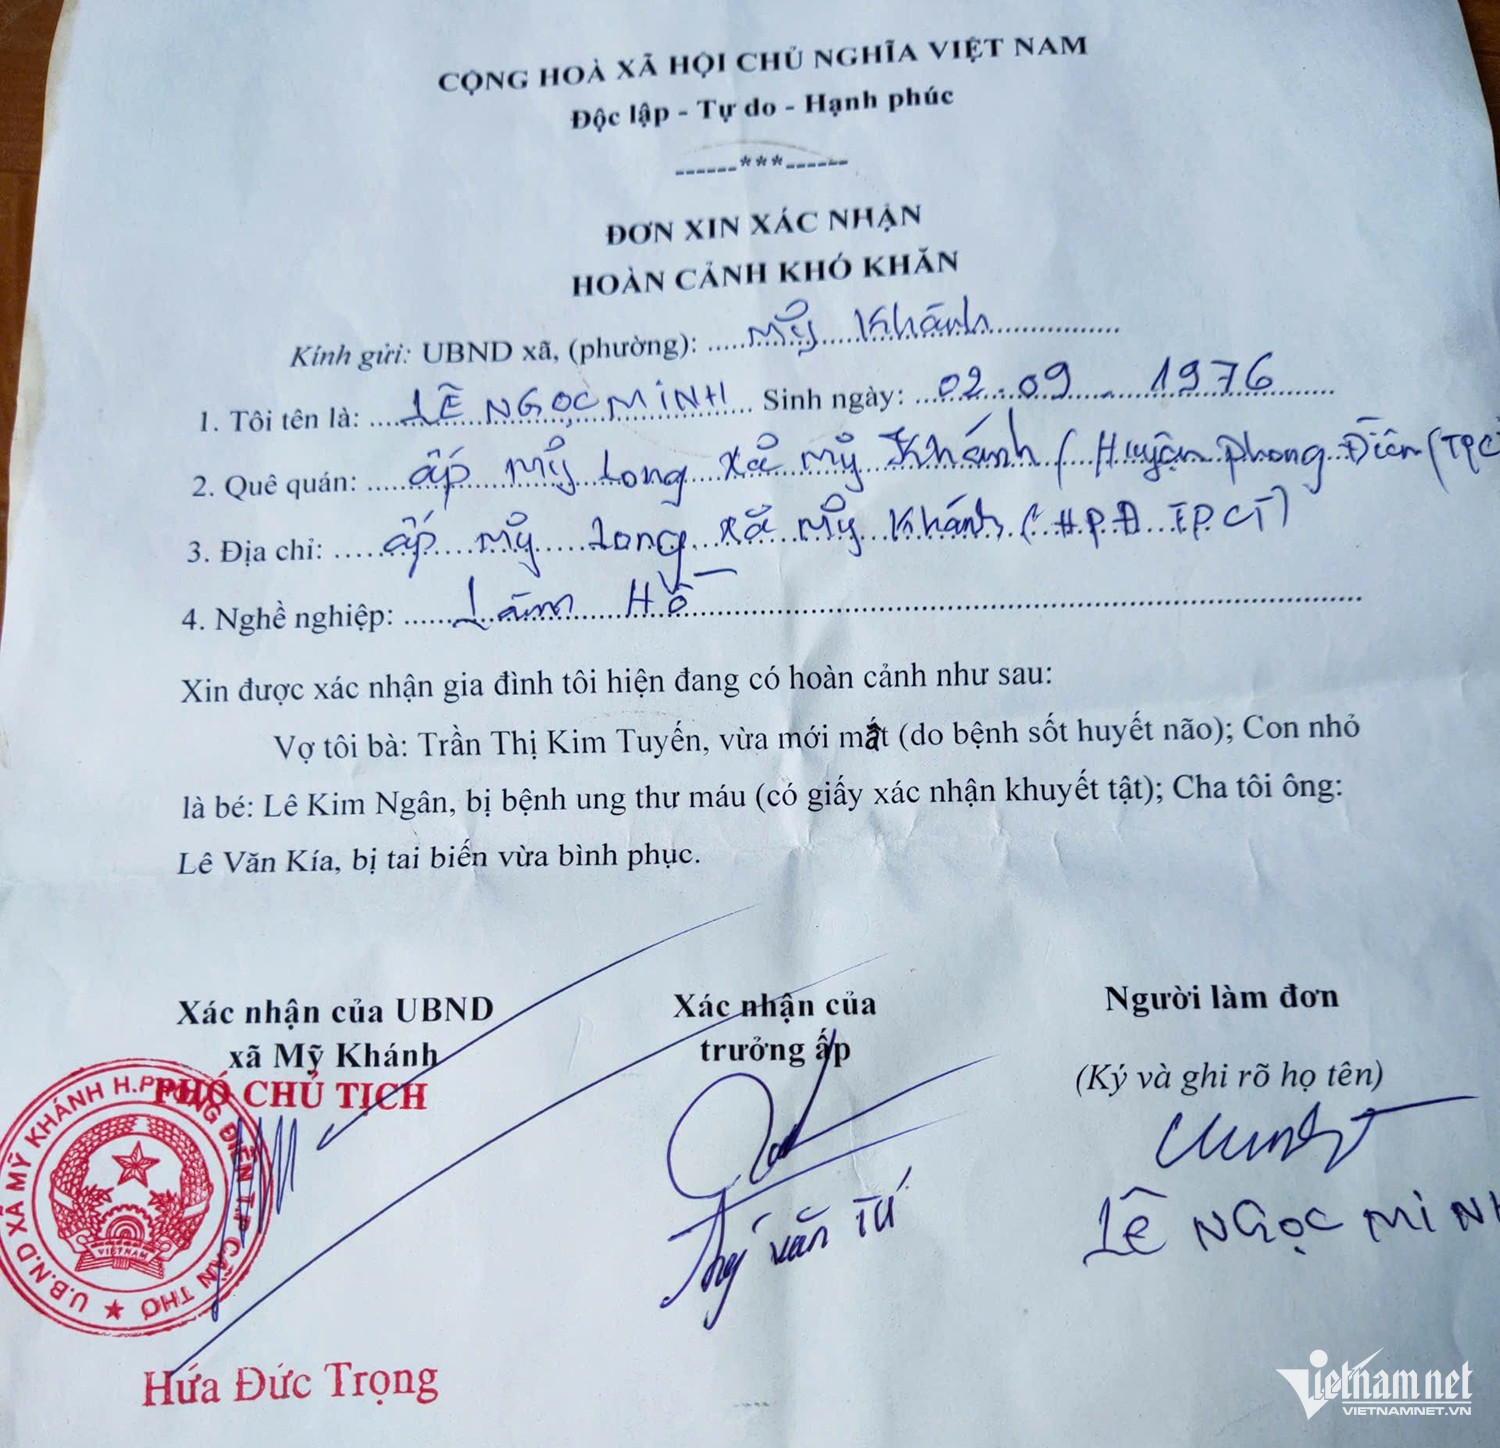 CỘNG HOÀ XÃ HỘI CHỦ NGHĨA VIỆT NAM
Độc lập - Tự do - Hạnh phúc
------***------
ĐƠN XIN XÁC NHẬN
HOÀN CẢNH KHÓ KHĂN
Kính gửi: UBND xã, (phường): Mỹ Khánh
1. Tôi tên là: LÊ NGỌC MINH Sinh ngày: 02.09.1976
2. Quê quán: ấp Mỹ Long xã Mỹ Khánh (Huyện Phong Điền (TPC
3. Địa chỉ: ấp Mỹ Long xã Mỹ Khánh (H.P.Đ TPCT)
4. Nghề nghiệp: Làm Hồ
Xin được xác nhận gia đình tôi hiện đang có hoàn cảnh như sau:
Vợ tôi bà: Trần Thị Kim Tuyến, vừa mới mất (do bệnh sốt huyết não); Con nhỏ
là bé: Lê Kim Ngân, bị bệnh ung thư máu (có giấy xác nhận khuyết tật); Cha tôi ông:
Lê Văn Kía, bị tai biến vừa bình phục.
Xác nhận của UBND
xã Mỹ Khánh
PHÓ CHỦ TỊCH
U.B.N.D XÃ MỸ KHÁNH H.PHONG ĐIỀN T.P CẦN THƠ
VIỆT NAM
Hứa Đức Trọng
Xác nhận của
trưởng ấp
Văn Tú
Người làm đơn
(Ký và ghi rõ họ tên)
LÊ NGỌC MINH
Vietnamnet
VIETNAMNET.VN